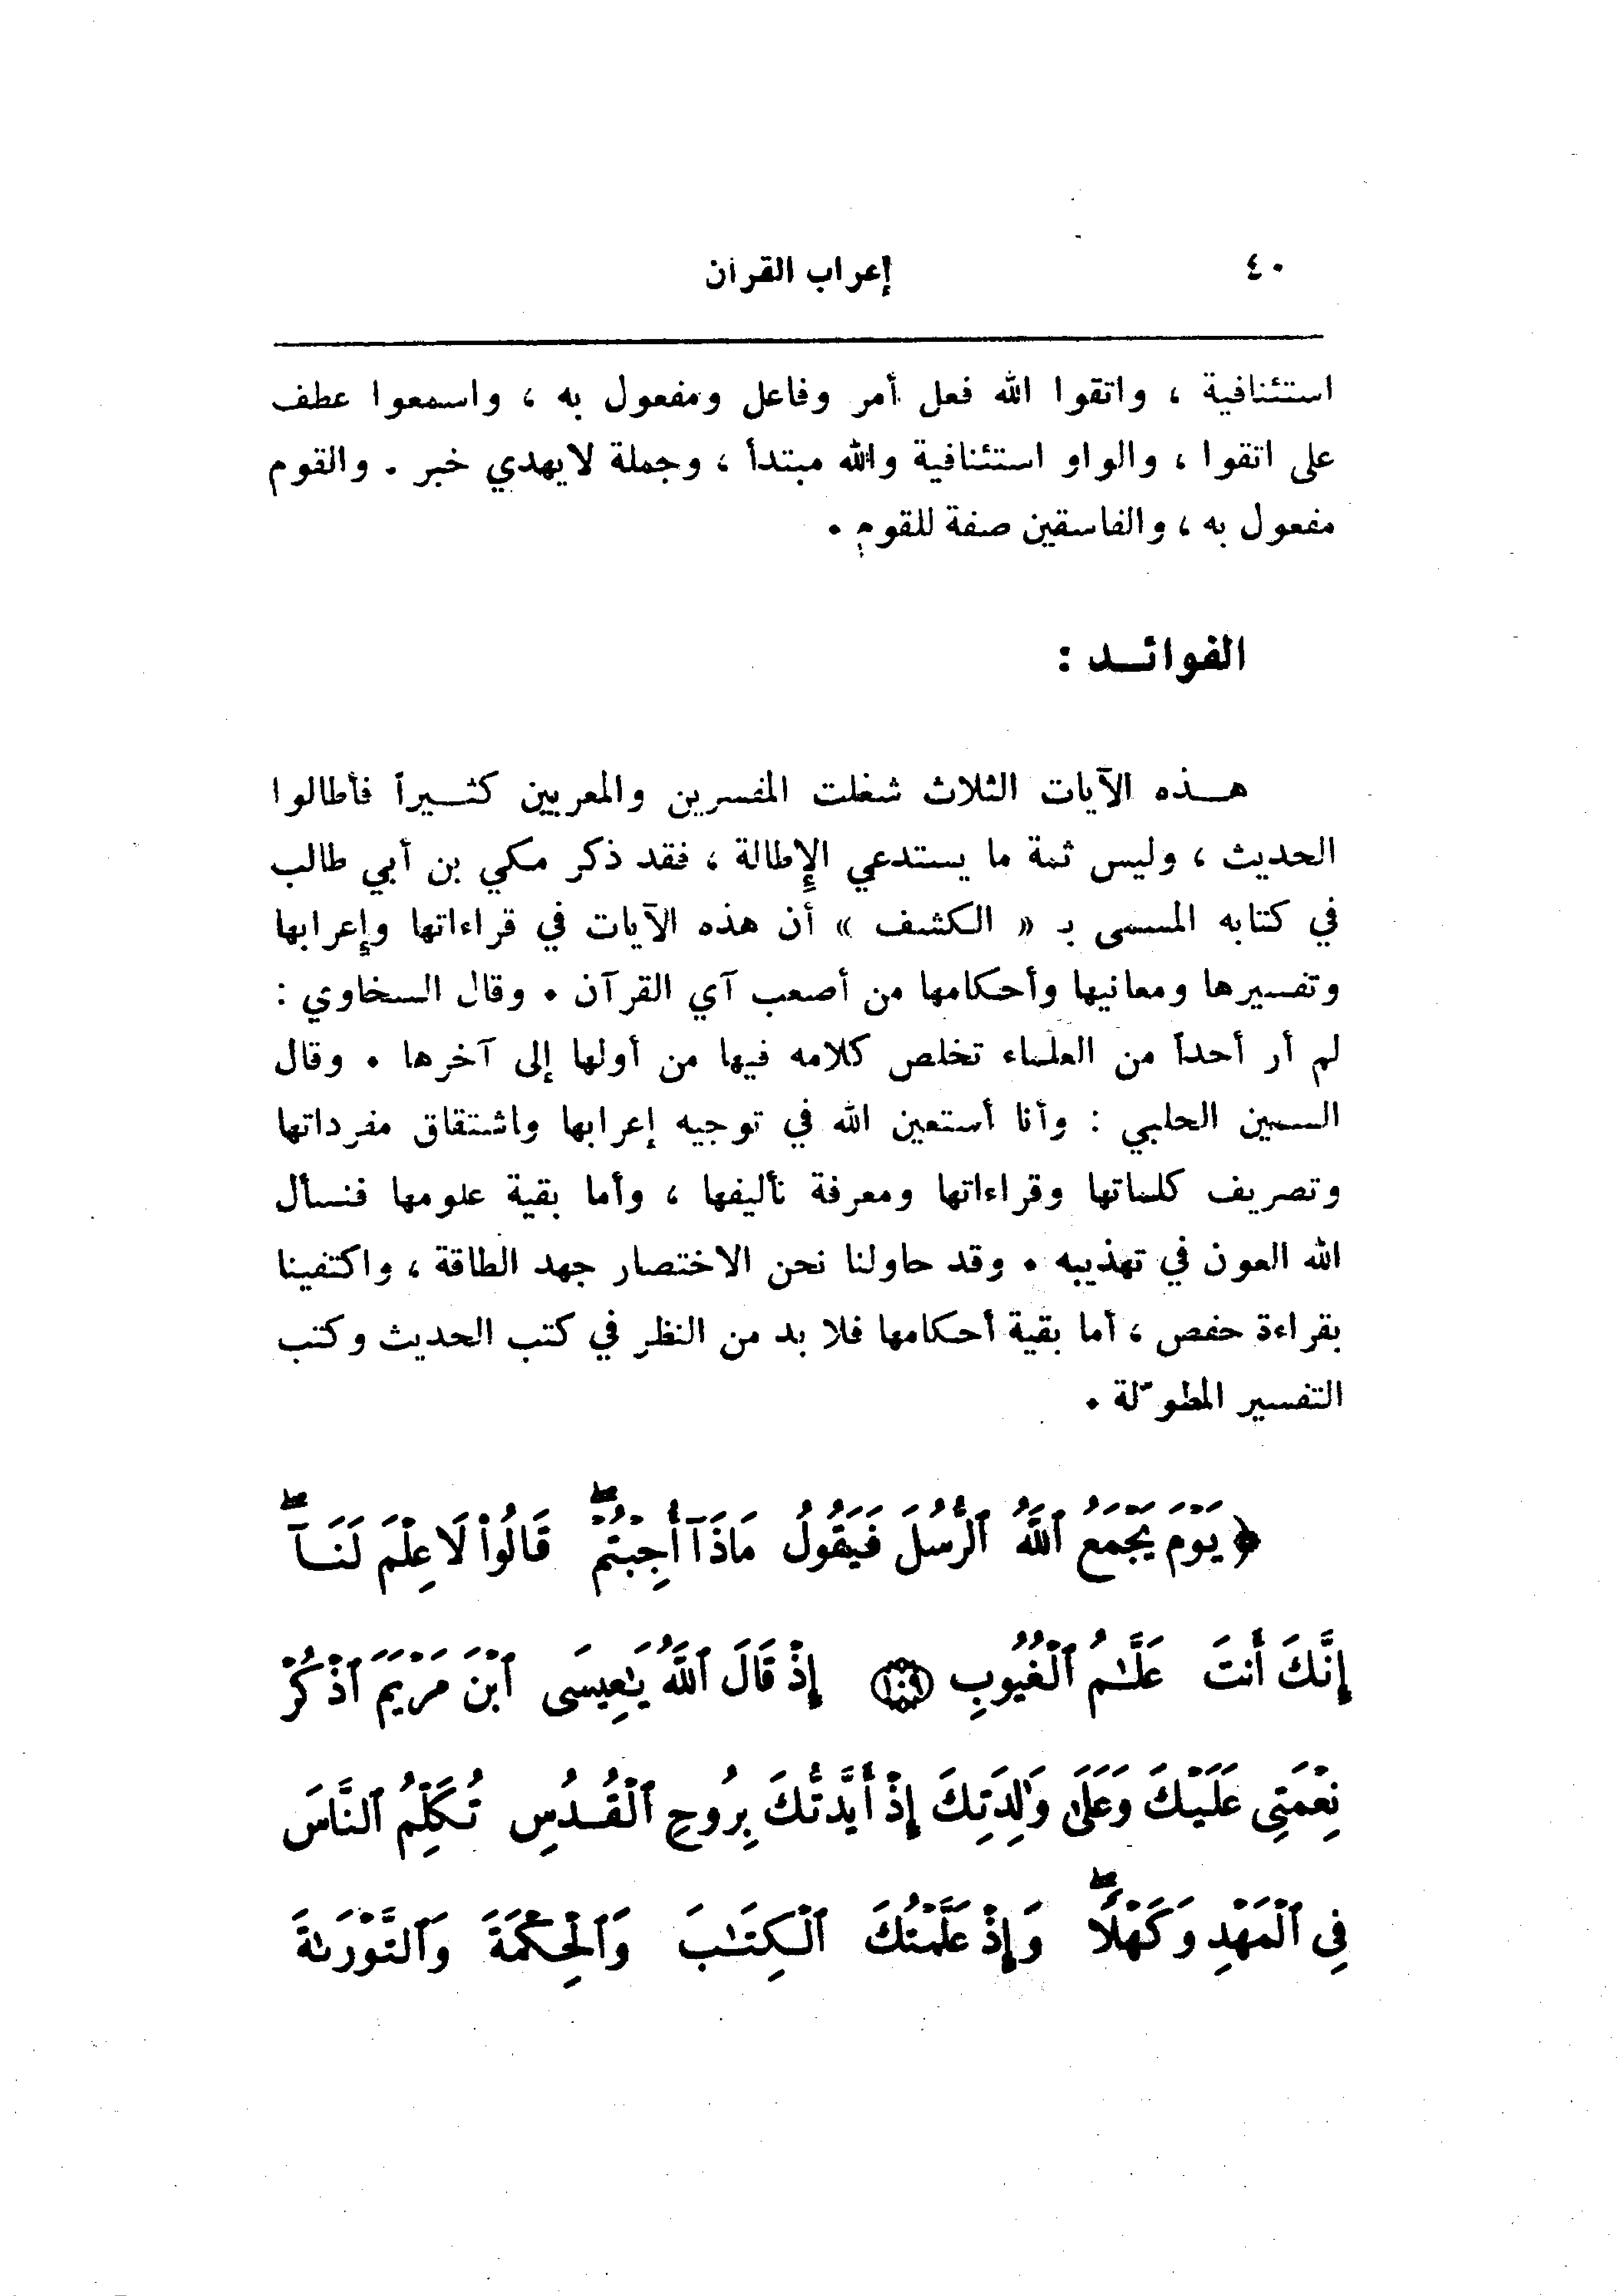 ٤٠ إعراب القرآن
استئنافية ، واتقوا الله فعل أمر وفاعل ومفعول به ، واسمعوا عطف
على اتقوا ، والواو استئنافية والله مبتدأ ، وجملة لايهدي خبر . والقوم
مفعول به ، والفاسقين صفة للقوم .
الفوائـد :
هـذه الآيات الثلاث شغلت المفسرين والمعربين كثـيراً فأطالوا
الحديث ، وليس ثمة ما يستدعي الإطالة ، فقد ذكر مكي بن أبي طالب
في كتابه المسمى بـ « الكشف » أن هذه الآيات في قراءاتها وإعرابها
وتفسيرها ومعانيها وأحكامها من أصعب آي القرآن . وقال السخاوي :
لم أر أحداً من العلماء تخلص كلامه فيها من أولها إلى آخرها . وقال
السمين الحلبي : وأنا أستعين الله في توجيه إعرابها واشتقاق مفرداتها
وتصريف كلماتها وقراءاتها ومعرفة تأليفها ، وأما بقية علومها فنسأل
الله العون في تهذيبه . وقد حاولنا نحن الاختصار جهد الطاقة ، واكتفينا
بقراءة حفص ، أما بقية أحكامها فلا بد من النظر في كتب الحديث وكتب
التفسير المطوّلة .
﴿ يَوْمَ يَجْمَعُ ٱللَّهُ ٱلرُّسُلَ فَيَقُولُ مَاذَآ أُجِبْتُمْۖ قَالُوا۟ لَا عِلْمَ لَنَـآۖ
إِنَّكَ أَنتَ عَلَّـٰمُ ٱلْغُيُوبِ ﴿١٠٩﴾ إِذْ قَالَ ٱللَّهُ يَـٰعِيسَى ٱبْنَ مَرْيَمَ ٱذْكُرْ
نِعْمَتِى عَلَيْكَ وَعَلَىٰ وَٰلِدَتِكَ إِذْ أَيَّدتُّكَ بِرُوحِ ٱلْقُـدُسِ تُكَلِّمُ ٱلنَّاسَ
فِى ٱلْمَهْدِ وَكَهْلًاۖ وَإِذْ عَلَّمْتُكَ ٱلْكِتَـٰبَ وَٱلْحِكْمَةَ وَٱلتَّوْرَىٰةَ